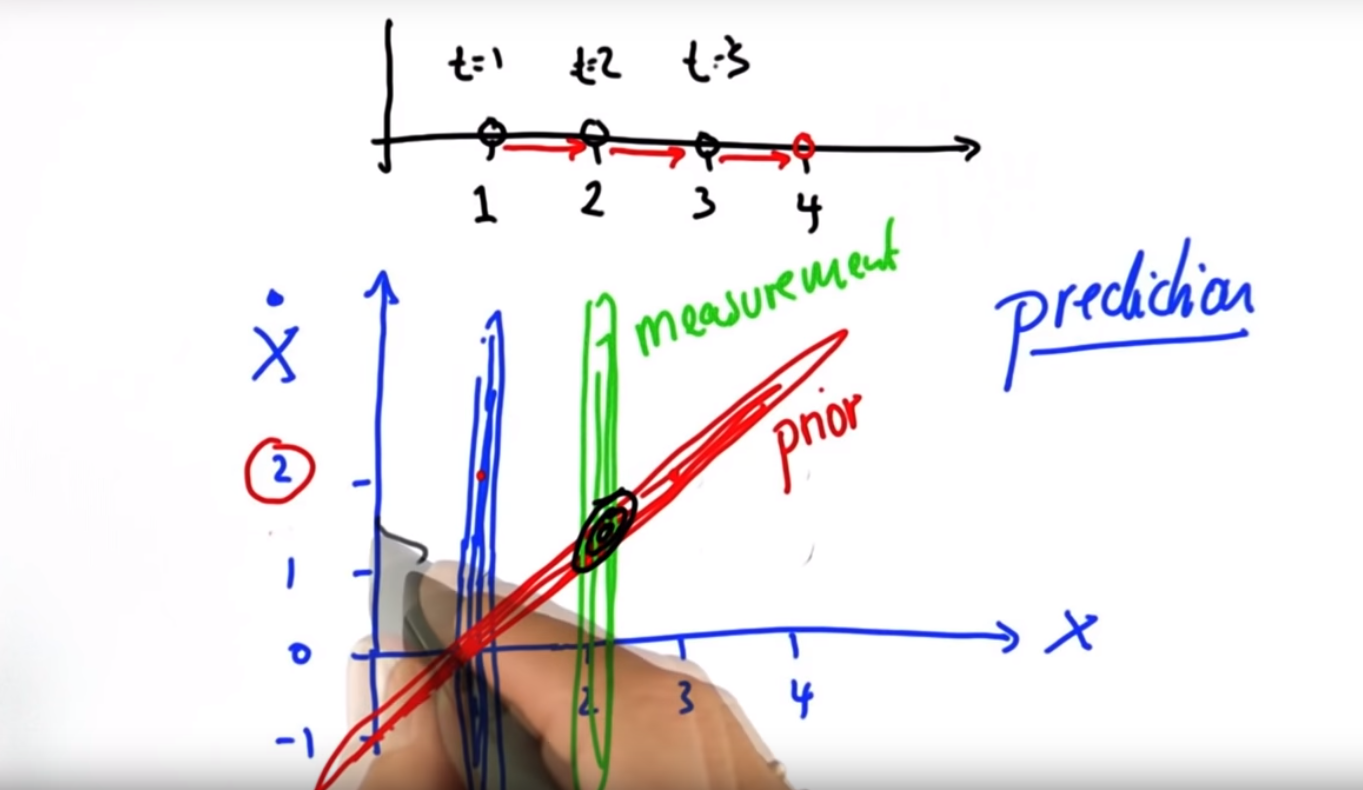 t=1 t=2 t=3
1 2 3 4
measurement
prediction
Ẋ
prior
2
1
0
X
2 3 4
-1